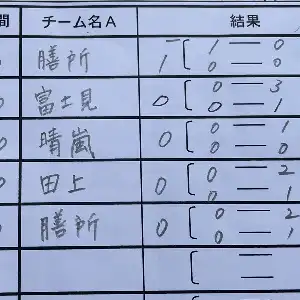 間 チーム名A 結果
膳所 1 1 — 0
0 — 0
富士見 0 0 — 3
0 — 1
晴嵐 0 0 — 1
0 — 0
田上 0 0 — 2
0 — 1
膳所 0 0 — 2
0 — 1